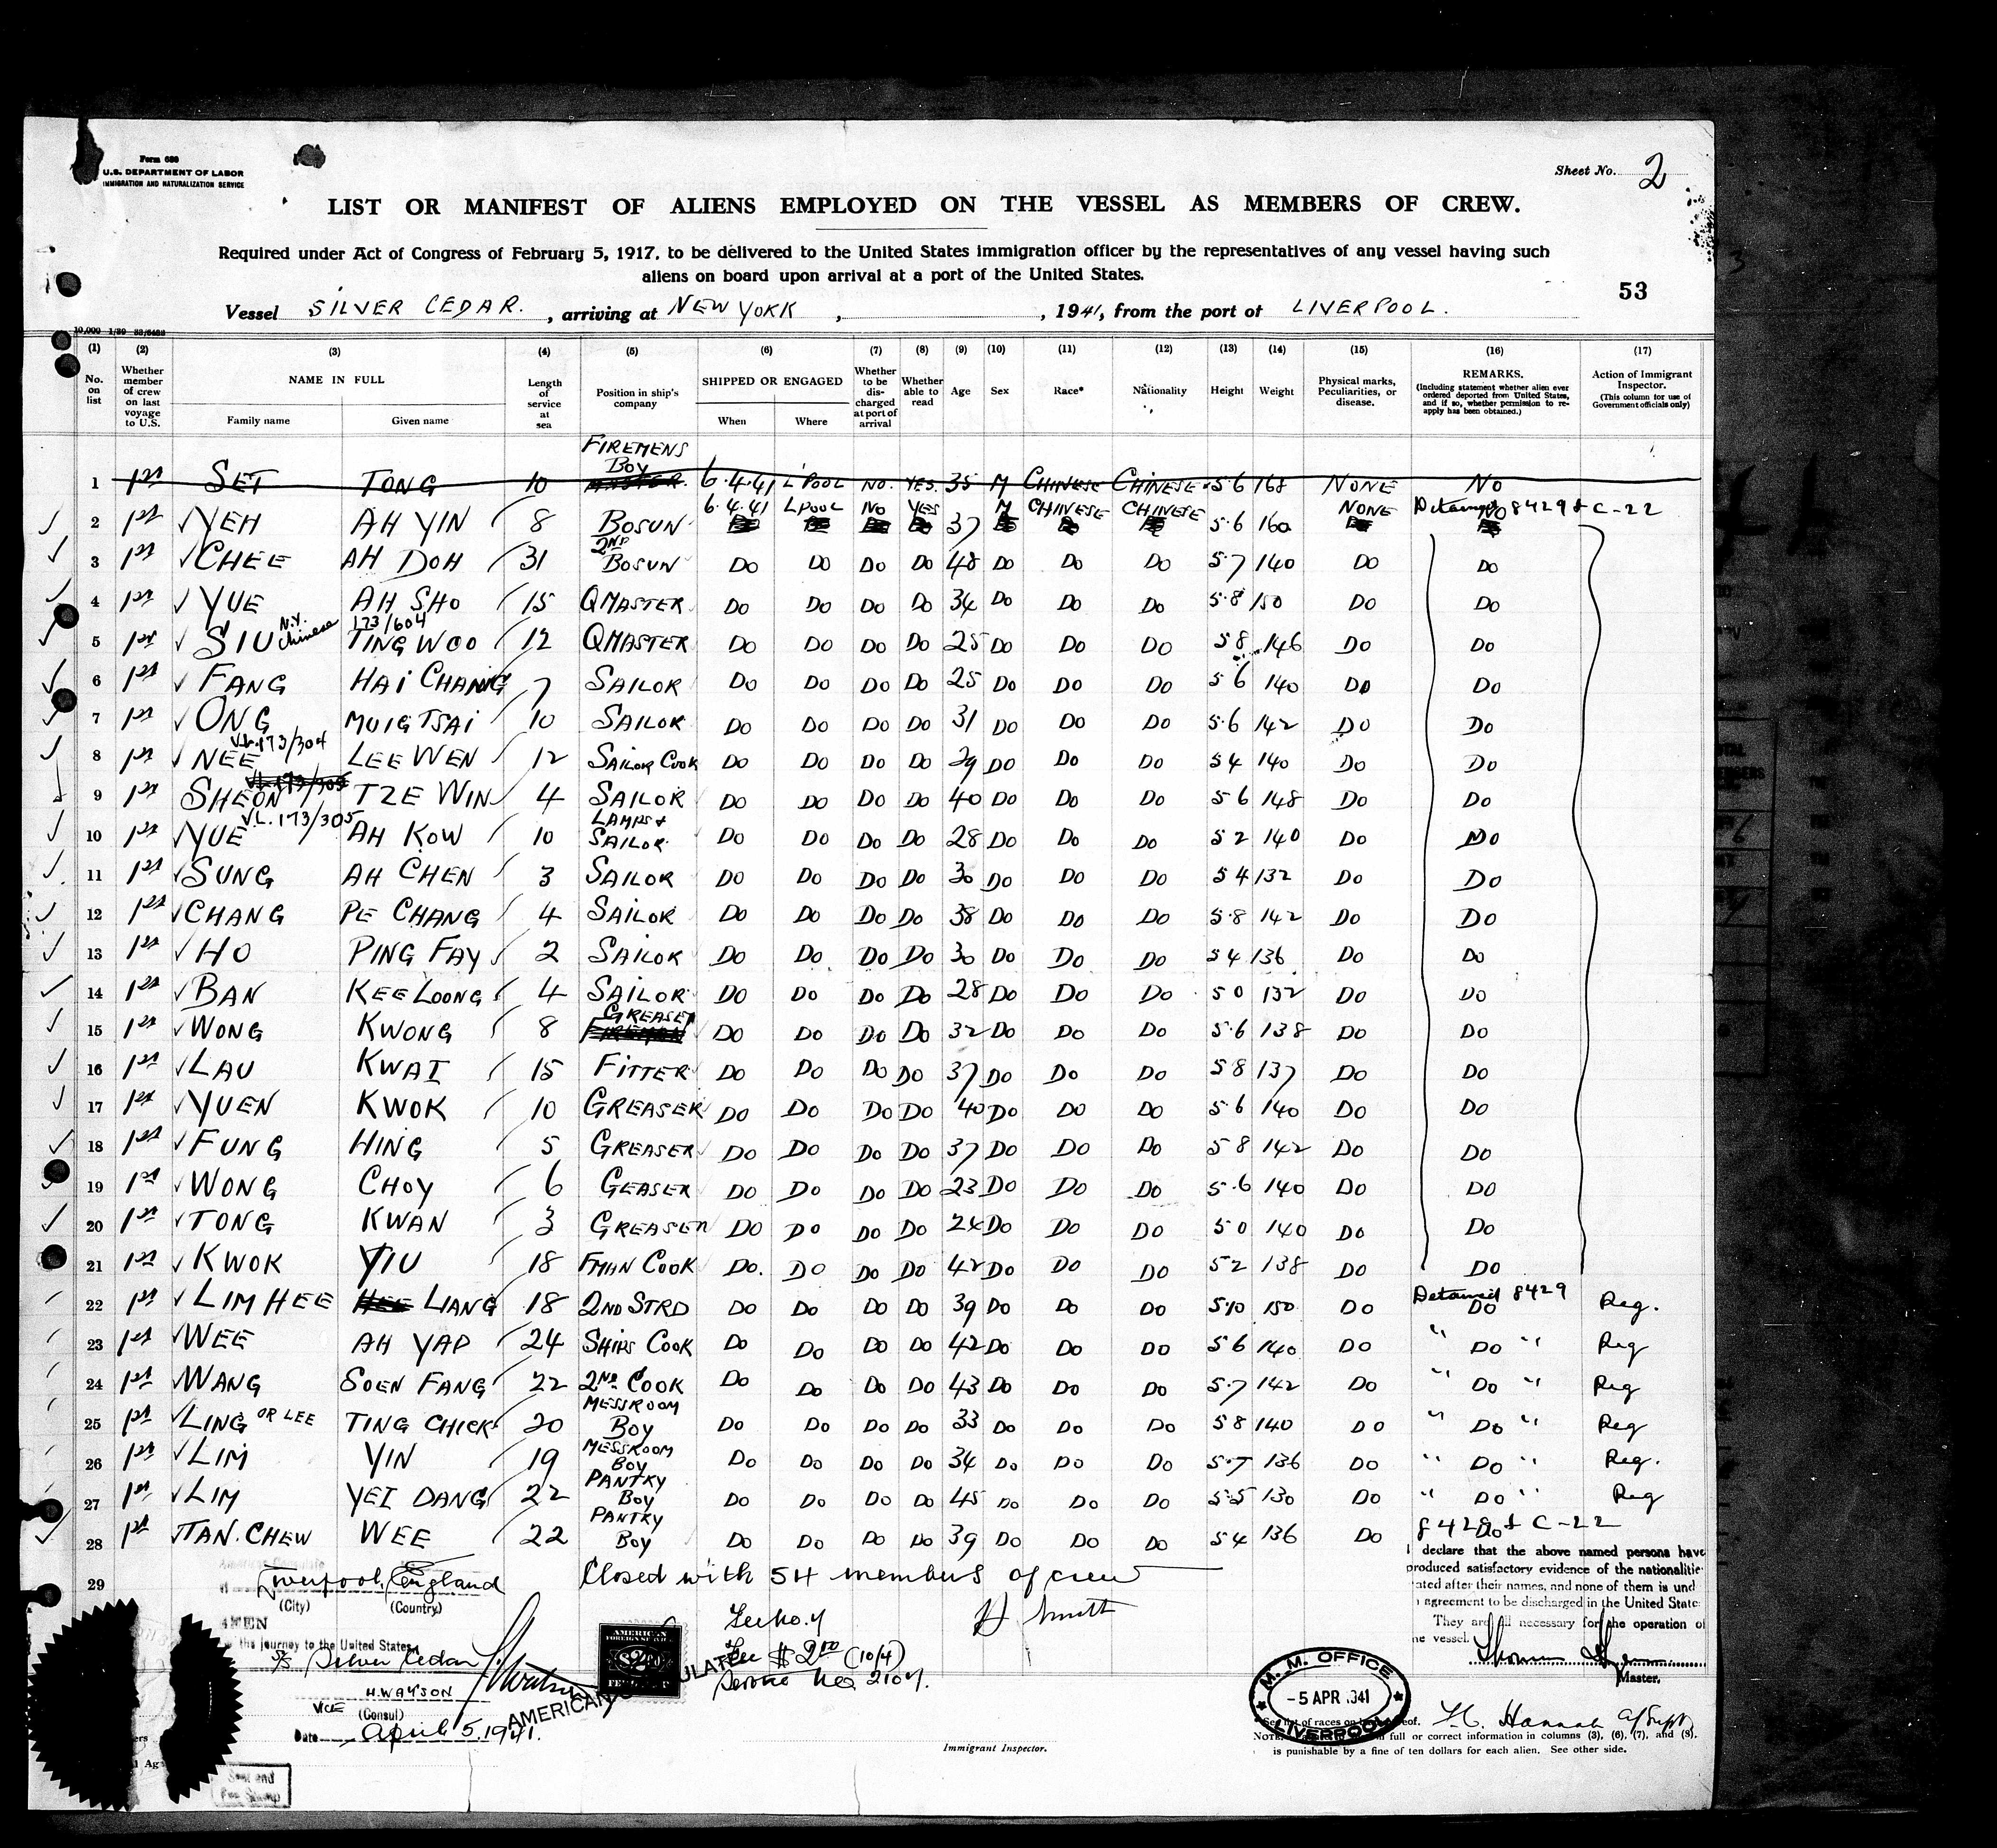 Form 680
U.S. DEPARTMENT OF LABOR
IMMIGRATION AND NATURALIZATION SERVICE
Sheet No. 2
LIST OR MANIFEST OF ALIENS EMPLOYED ON THE VESSEL AS MEMBERS OF CREW.
Required under Act of Congress of February 5, 1917, to be delivered to the United States immigration officer by the representatives of any vessel having such
aliens on board upon arrival at a port of the United States.
53
Vessel SILVER CEDAR. , arriving at NEW YORK , , 1941, from the port of LIVERPOOL.
(1) (2) (3) (4) (5) (6) (7) (8) (9) (10) (11) (12) (13) (14) (15) (16) (17)
No. on list Whether member of crew on last voyage to U.S. NAME IN FULL Family name Given name Length of service at sea Position in ship's company SHIPPED OR ENGAGED When Where Whether to be discharged at port of arrival Whether able to read Age Sex Race* Nationality Height Weight Physical marks, Peculiarities, or disease. REMARKS. (Including statement whether alien ever ordered deported from United States, and if so, whether permission to re-apply has been obtained.) Action of Immigrant Inspector. (This column for use of Government officials only)
1 1st SET TONG 10 FIREMENS BOY 6.4.41 L'POOL NO. YES. 35 M CHINESE CHINESE 5 6 168 NONE NO
2 1st YEH AH YIN 8 BOSUN 6.4.41 LPOOL NO YES 37 M CHINESE CHINESE 5.6 160 NONE NO Detained 8429 & C-22
3 1st CHEE AH DOH 31 2ND BOSUN DO DO DO DO 48 DO DO DO 5.7 140 DO DO
4 1st YUE AH SHO 15 QMASTER DO DO DO DO 34 DO DO DO 5.8 150 DO DO
5 1st SIU N.Y. Chinese 173/604 TING WOO 12 QMASTER DO DO DO DO 25 DO DO DO 5 8 146 DO DO
6 1st FANG HAI CHANG 7 SAILOR DO DO DO DO 25 DO DO DO 5 6 140 DO DO
7 1st ONG MUIG TSAI 10 SAILOR DO DO DO DO 31 DO DO DO 5.6 142 DO DO
8 1st NEE V.L. 173/304 LEE WEN 12 SAILOR COOK DO DO DO DO 29 DO DO DO 5 4 140 DO DO
9 1st SHEON TZE WIN 4 SAILOR DO DO DO DO 40 DO DO DO 5 6 148 DO DO
10 1st YUE V.L. 173/305 AH KOW 10 LAMPS & SAILOR DO DO DO DO 28 DO DO DO 5 2 140 DO DO
11 1st SUNG AH CHEN 3 SAILOR DO DO DO DO 30 DO DO DO 5 4 132 DO DO
12 1st CHANG PE CHANG 4 SAILOR DO DO DO DO 38 DO DO DO 5.8 142 DO DO
13 1st HO PING FAY 2 SAILOR DO DO DO DO 30 DO DO DO 5 4 136 DO DO
14 1st BAN KEE LOONG 4 SAILOR DO DO DO DO 28 DO DO DO 5 0 132 DO DO
15 1st WONG KWONG 8 GREASER DO DO DO DO 32 DO DO DO 5.6 138 DO DO
16 1st LAU KWAI 15 FITTER DO DO DO DO 37 DO DO DO 5 8 137 DO DO
17 1st YUEN KWOK 10 GREASER DO DO DO DO 40 DO DO DO 5.6 140 DO DO
18 1st FUNG HING 5 GREASER DO DO DO DO 37 DO DO DO 5 8 142 DO DO
19 1st WONG CHOY 6 GEASER DO DO DO DO 23 DO DO DO 5.6 140 DO DO
20 1st TONG KWAN 3 GREASER DO DO DO DO 24 DO DO DO 5 0 140 DO DO
21 1st KWOK YIU 18 FMAN COOK DO. DO DO DO 42 DO DO DO 5 2 138 DO DO
22 1st LIM HEE LIANG 18 2ND STRD DO DO DO DO 39 DO DO DO 5.10 150 DO Detained 8429 DO Reg.
23 1st WEE AH YAP 24 SHIPS COOK DO DO DO DO 42 DO DO DO 5 6 140 DO " DO " Reg
24 1st WANG SOEN FANG 22 2ND COOK DO DO DO DO 43 DO DO DO 5.7 142 DO " DO " Reg
25 1st LING OR LEE TING CHICK 20 MESSROOM BOY DO DO DO DO 33 DO DO DO 5 8 140 DO " DO " Reg
26 1st LIM YIN 19 MESSROOM BOY DO DO DO DO 34 DO DO DO 5.7 136 DO " DO " Reg.
27 1st LIM YEI DANG 22 PANTRY BOY DO DO DO DO 45 DO DO DO 5.5 130 DO " DO " Reg
28 1st TAN. CHEW WEE 22 PANTRY BOY DO DO DO DO 39 DO DO DO 5 4 136 DO DO 8429 & C-22
29 Liverpool, England Closed with 54 members of crew
(City) (Country)
declare that the above named persons have
produced satisfactory evidence of the nationalitie
ated after their names, and none of them is und
agreement to be discharged in the United State
They are all necessary for the operation of
he vessel.
Master.
H Smith
the journey to the United States
S/S Silver Cedar
Fee $ 2.00 (10/4)
Service No. 2104.
AMERICAN FOREIGN SERVICE
H. WATSON
VICE (Consul)
Date April 5, 1941.
M. M. OFFICE
- 5 APR 1941
LIVERPOOL
Immigrant Inspector.
full or correct information in columns (3), (6), (7), and (8).
is punishable by a fine of ten dollars for each alien. See other side.
Seal and
Fee Stamp